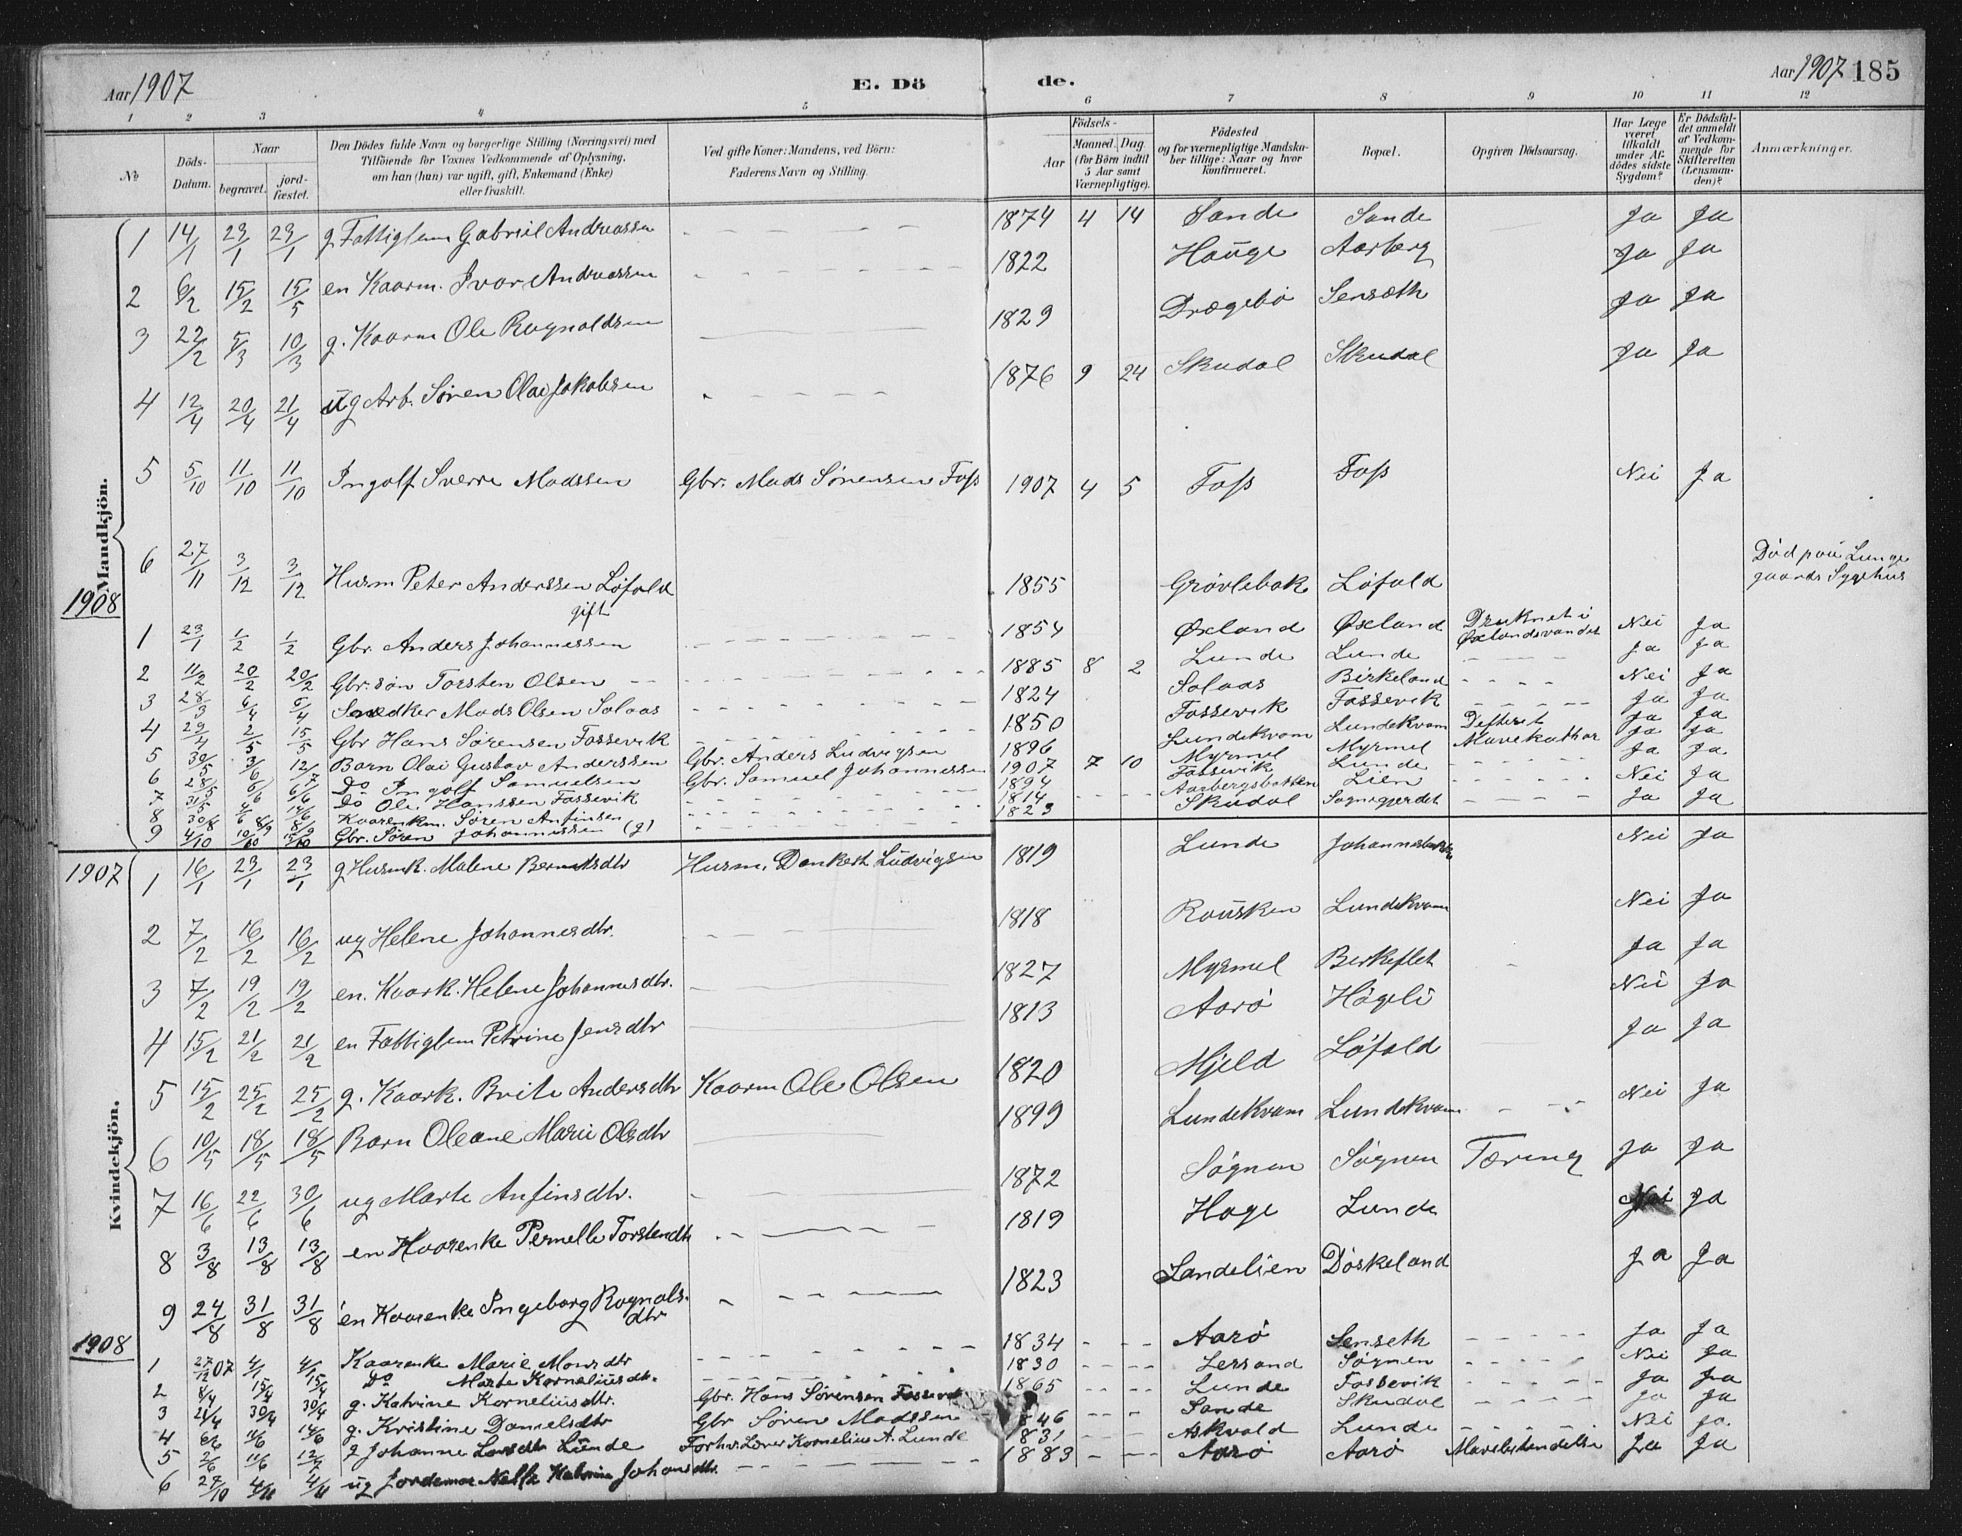 Aar 1907
E. Dö
de.
Aar 1907 185
1 2 3 4 5 6 7 8 9 10 11 12
No
Döds-Datum.
Naar
begravet.
jord-fæstet.
Den Dödes fulde Navn og borgerlige Stilling (Næringsvei) med
Tilföiende for Voxnes Vedkommende af Oplysning,
om han (hun) var ugift, gift, Enkemand (Enke)
eller fraskilt.
Ved gifte Koner: Mandens, ved Börn:
Faderens Navn og Stilling.
Födsels-
Aar
Maaned. Dag.
(for Börn indtil
5 Aar samt
Værnepligtige).
Födested
og for værnepligtige Mandska-
ber tillige: Naar og hvor
konfirmeret.
Bopæl.
Opgiven Dödsaarsag.
Har Læge
været
tilkaldt
under Af-
dödes sidste
Sygdom?
Er Dödsfal-
det anmeldt
af Vedkom-
mende for
Skifteretten
(Lensman-
den)?
Anmærkninger.
Mandkjön.
1 14/1 23/1 23/1 g Fattiglem Gabriel Andreassen 1874 4 14 Sande Sande Ja Ja
2 6/2 15/2 15/5 en Kaarm. Ivar Andreassen 1822 Hauge Aarberg Ja Ja
3 22/2 5/3 10/3 g. Kaarm Ole Ragnaldsen 1829 Drægebö Senseth Ja Ja
4 12/4 20/4 21/4 ug Arb. Sören Olai Jakobsen 1876 9 24 Skudal Skudal Ja Ja
5 5/10 11/10 11/10 Ingolf Sverre Madssen Gbr. Mads Sørensen Foss 1907 4 5 Foss Foss Nei Ja
6 27/11 3/12 3/12 Husm Peter Anderssen Løfald gift 1855 Grøvlebak Løfald Död paa Lunge
gaards Sygehus
1908
1 23/1 1/2 1/2 Gbr. Anders Johannessen 1854 Øxland Øxland Druknet i Øxlandsvandet Nei Ja
2 11/2 20/2 20/2 Gbr. søn Torsten Olsen 1885 8 2 Lunde Lunde Ja Ja
3 28/3 6/4 5/4 Snedker Mads Olsen Solaas 1824 Solaas Birkeland Nei Ja
4 29/4 2/5 15/5 Gbr Hans Sørensen Fossevik 1850 Fossevik Fossevik Ja Ja
5 30/5 3/6 12/7 Barn Olai Gustav Anderssen Gbr. Anders Ludvigsen 1896 Lundekvam Lundekvam Difterit Ja Ja
6 28/5 Do Ingolf Samuelsen Gbr. Samuel Johannessen 1907 7 10 Myrmel Myrmel Mavekathar Ja Ja
7 31/5 Do Ole Hanssen Fossevik 1894 Fossevik Lunde Ja Ja
8 30/8 8/9 8/9 Kaarenkm. Sören Anfinsen 1814 Aarbergsbakken Lien Nei Ja
9 4/10 10/10 Gbr. Søren Johannessen (g) 1823 Skudal Sognegjerdet Ja Ja
Kvindekjön.
1907
1 16/1 23/1 23/1 g Husmk. Malene Berntsdtr Husm. Dankert Ludvigsen 1819 Lunde Nei Ja
2 7/2 16/2 16/2 ug Helene Johannesdtr. 1818 Rousken Lundekvam Nei Ja
3 7/2 19/2 19/2 en. Kaark. Helene Johannesdtr. 1827 Myrmel Birkeflet Ja Ja
4 15/2 21/2 21/2 en Fattiglem Petrine Jensdtr 1813 Aarö Högeli Nei Ja
5 15/2 25/2 25/2 g. Kaark. Brite Andersdtr Kaarm Ole Olsen 1820 Mjeld Løfald Ja Ja
6 10/5 18/5 18/5 Barn Oleane Marie Olsdtr 1899 Lundekvam Lundekvam Nei Ja
7 16/6 22/6 30/6 ug Marte Anfinsdtr. 1872 Søgnen Søgnen Tæring Ja Ja
8 3/8 13/8 13/8 en Kaarenke Pernelle Torstendtr 1819 Hage Lunde Nei Ja
9 24/8 31/8 31/8 en Kaarenke Ingeborg Ragnals-
dtr 1823 Sandelien Döskeland Ja Ja
1908
1 27/12 07 4/1 4/1 Kaarenke Marie Monsdtr 1834 Aarö Senseth Ja Ja
2 8/4 15/4 15/4 Do Marte Korneliusdtr. 1830 Lersand Søgnen Nei Ja
3 21/4 30/4 30/4 g. Katrine Korneliusdtr. Gbr. Hans Sørensen Fossevik 1865 Lunde Fossevik Ja Ja
4 6/6 11/6 14/6 g. Kristine Danielsdtr Gbr Søren Madssen 46 Sande Skudal Ja Ja
5 2/6 11/6 12/7 g Johanne Larsdtr Lunde Forhv. Lærer Kornelius A. Lunde 1831 Askvold Lunde Nei Ja
6 27/10 4/11 4/11 ug Jordemor Katrine Johansdtr. 1883 Aarö Aarö Ja Ja